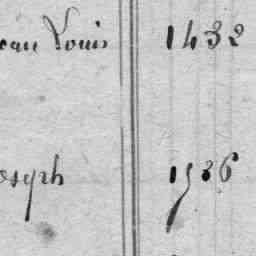 ean Louis 1432
oseph 1536